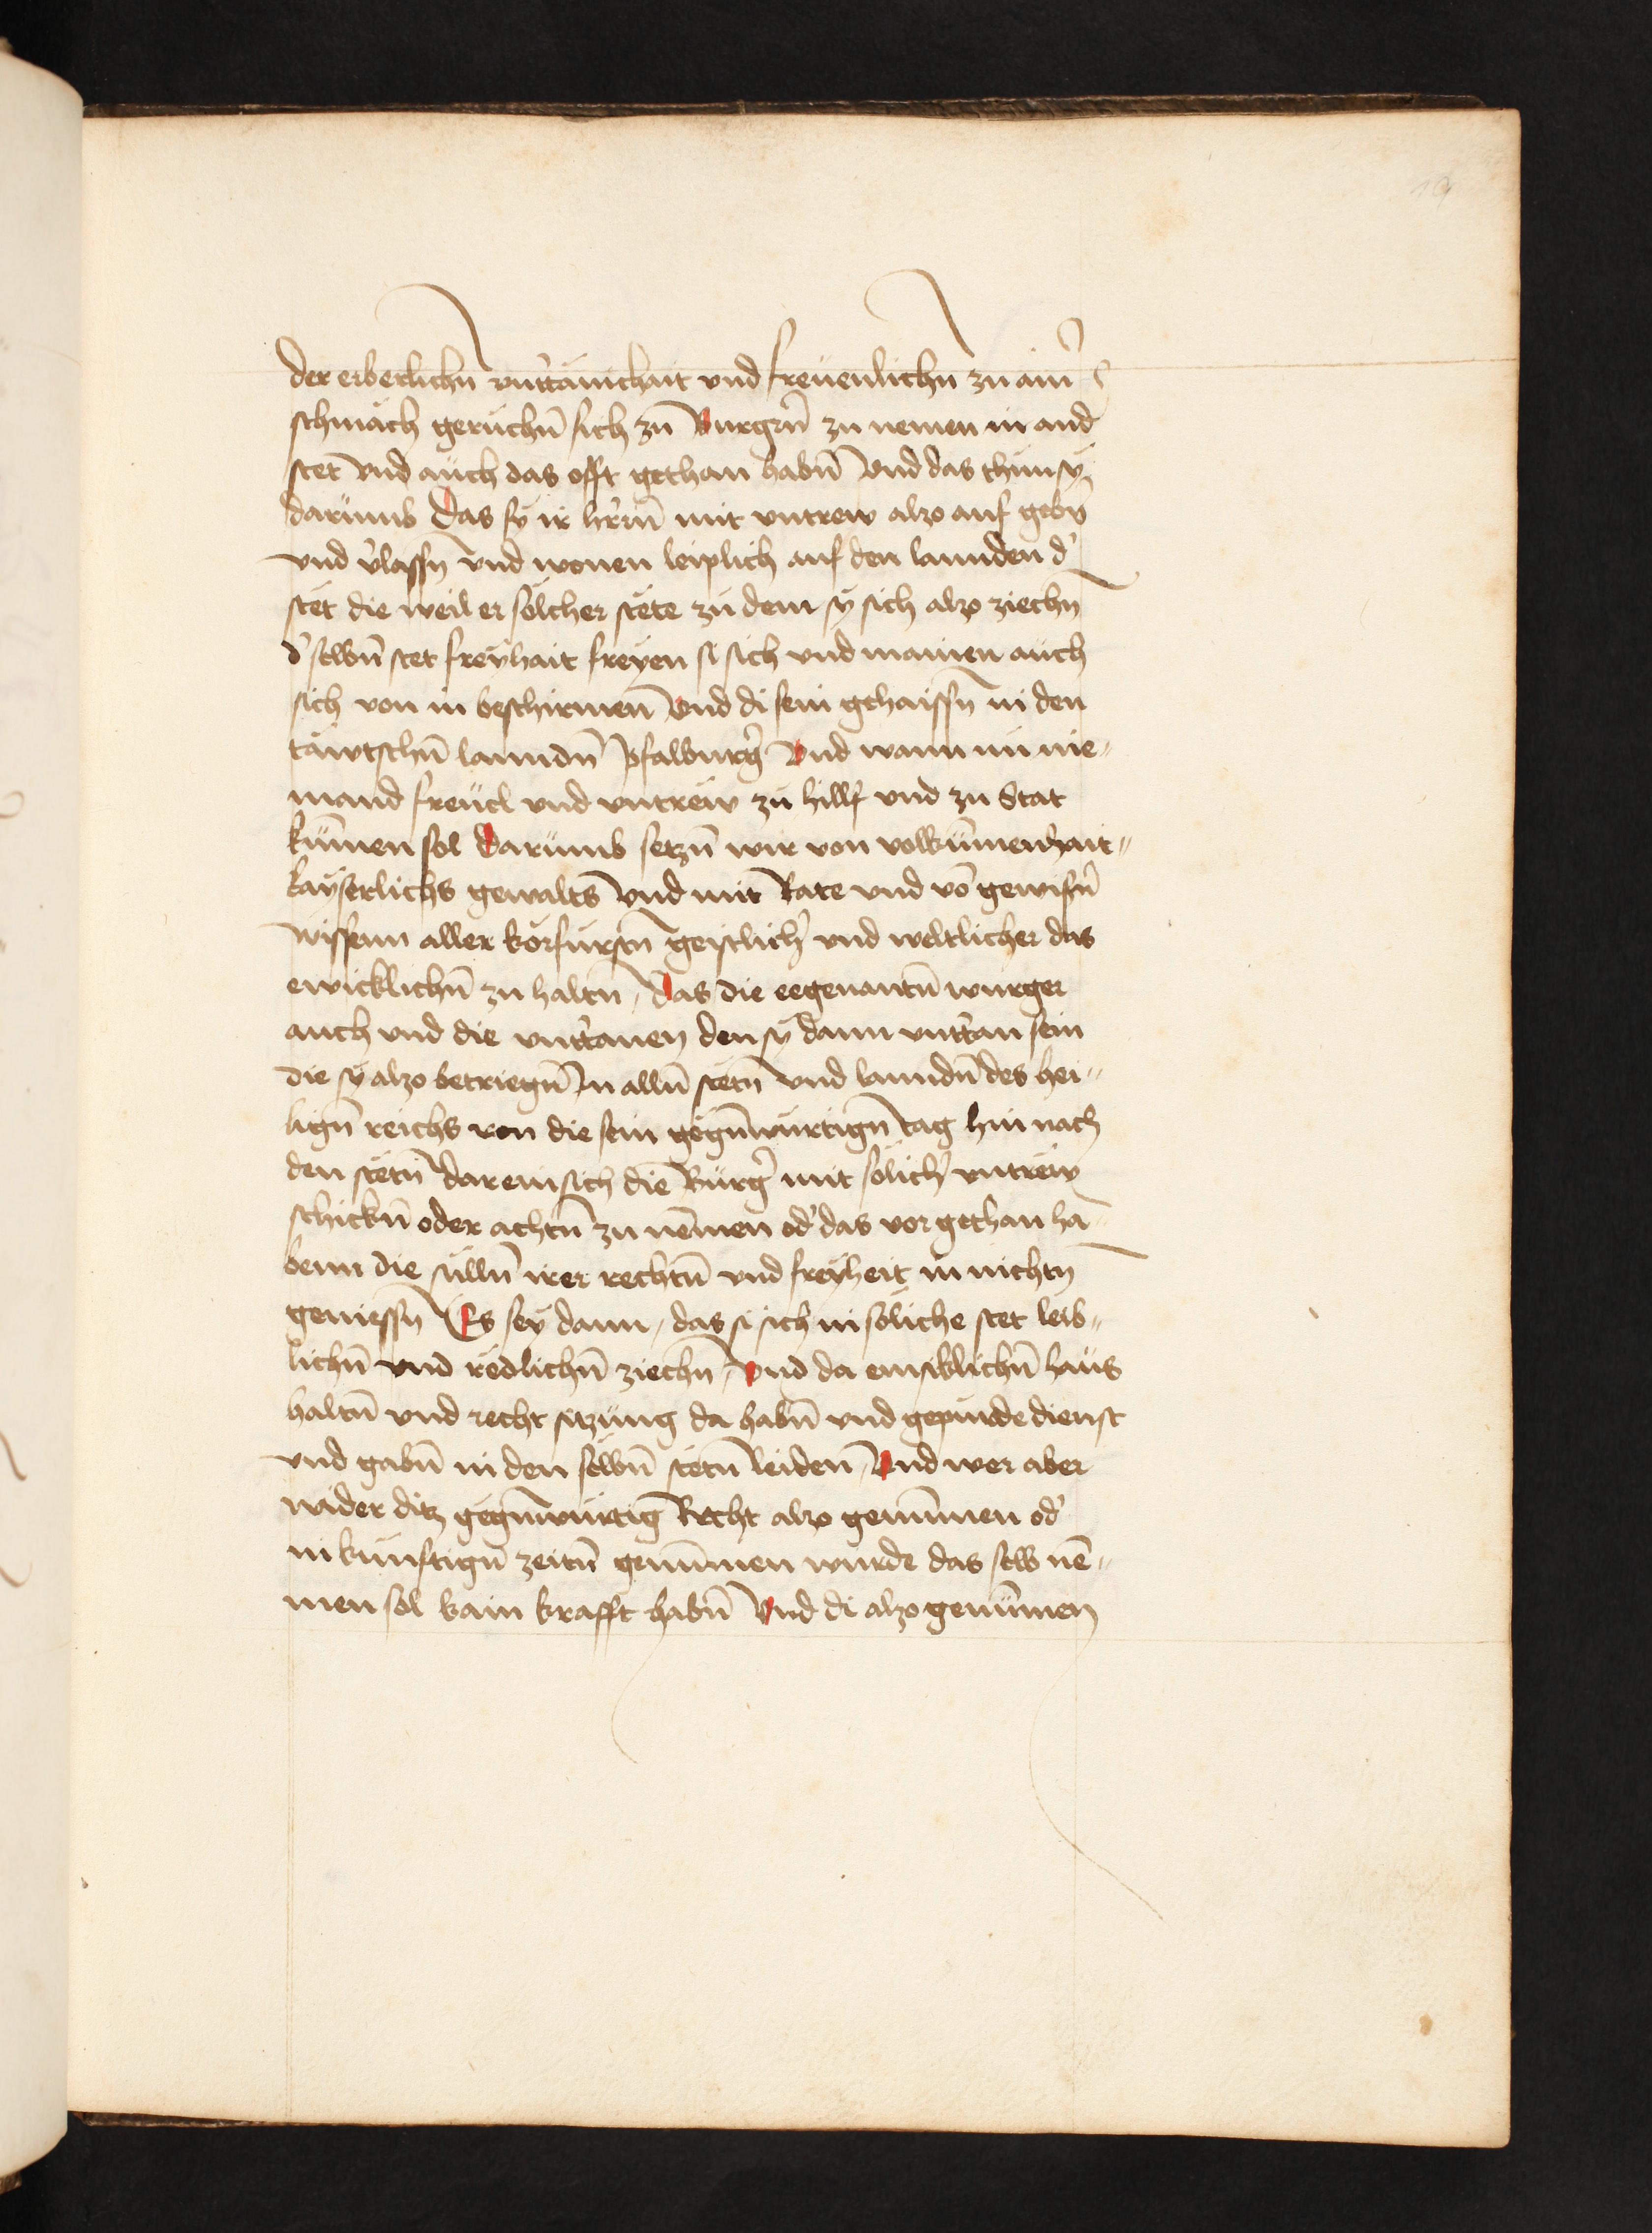 19
der erberlichn̄ vntt̓tänichait vnd freuenlichn zu ain̓
schmäch gerüchn̄ sich zu Burgrn̄ zu nemen in and̓
stet vnd aüch das offt gethan habn̄ vnd das thün sy
darümb Das sÿ ir hr̓rn̄ mit vntrew alzo auf gebn̄
vnd v̓lassn vnd wonen leiplich auf den lannden d̓
stet die weil er sölcher stete zü dem sÿ sich alzo ziechn
d̓ selbn̄ stet freÿhait freyen si sich vnd mainen aüch
sich von in beschirmen̄ Vnd di sein gehaissn in den
täwtschn̄ lanndn̄ pfalburg̓ Vnd wann nü nie-
mand freüel vnd vntrëw zü hillf vnd zu Stat
kümen sol Darümb setzn̄ wir von volkümenhait-
kaÿserlichs gewalts Vnd mit Rate vnd vō gewisn̄
wissenn aller körfürstn̄ geistlich̓ vnd weltlicher das
ewicklichn̄ zu haltn, Das die eegenantn̄ wurger
auch vnd die vntt̓tanen den sÿ dann vntt̓tan sein
die sÿ alzo betriegn̄ In alln̄ stetn̄ vnd lanndn̄ des hei-
lign̄ reichs von die sein gegn̄würtign̄ tag hin nach
den stetn̄ darein sich die Bürg̓ mit sölich̓ vntrëw
schickn̄ oder achtn̄ zu nēmen od̓ das vor gethan ha-
benn die sülln̄ irer rechtn̄ vnd freÿheit in nichtn
geniessn̄ Es seÿ dann, das si sich in söliche stet leib-
lichn̄ vnd redlichn̄ ziechn̄, Vnd da emsiklichn̄ haüs
haltn̄ vnd recht sitzüng da habn̄ vnd gepürde dienst
vnd gabn̄ in den selbn̄ stetn̄ leiden̄, Vnd wer aber
wider ditz gegn̄würtig Recht alzo genūmen od̓
in künftign̄ zeitn̄ genümmen würde das selb nē-
men sol kain krafft habn̄ Vnd di alzo genümen